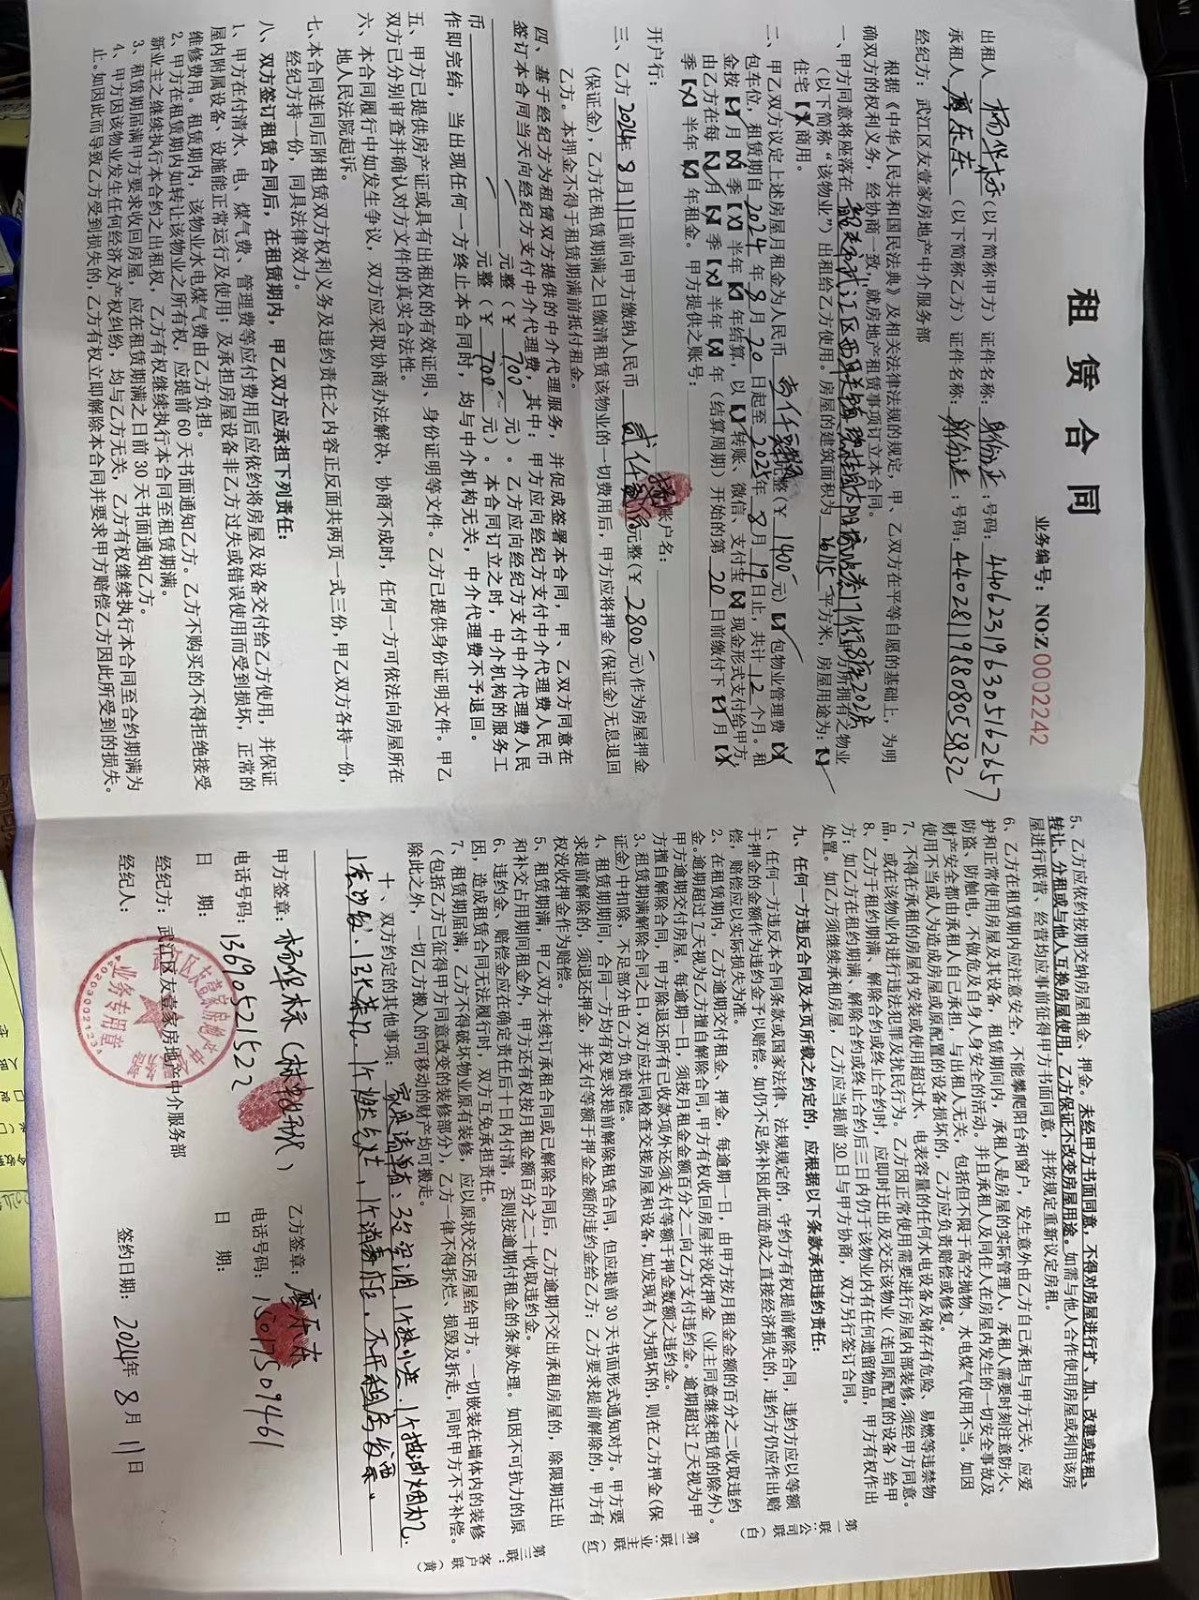 租赁合同
业务编号：NO:Z 00002242
出租人 杨华标 (以下简称甲方）证件名称：身份证:号码:440623196305162657
承租人 廖东东 (以下简称乙方）证件名称：身份证:号码:440281198808053832
经纪方：武江区友壹家房地产中介服务部
根据《中华人民共和国民法典》及相关法律法规的规定，甲、乙双方在平等自愿的基础上，为明
确双方的权利义务，经协商一致，就房地产租赁事项订立本合同。
一、甲方同意将座落在 韶关市武江区西联镇 房所拥有之物业
（以下简称“该物业”）出租给乙方使用。房屋的建筑面积为 平方米，房屋用途为：【√】
住宅【X】商用。
二、甲乙双方议定上述房屋月租金为人民币 元整（￥ 1400 元）【√】包物业管理费【X】
包车位，租赁期自 2024 年 8 月 20 日起至 2025 年 8 月 19 日止，共计 12 个月。租
金按【√】月【X】季【X】半年【X】年结算，以【√】转账、微信、支付宝【X】现金形式支付给甲方，
由乙方在每【√】月【X】季【X】半年【X】年（结算周期）开始的第 20 日前缴付下【√】月【X】
季【X】半年【X】年租金。甲方提供之账号：
开户行： 账户名：
三、乙方 2024年 8 月 11 日前向甲方缴纳人民币 贰仟捌佰 元整(￥ 2800 元)作为房屋押金
(保证金)，乙方在租赁期满之日缴清租赁该物业的一切费用后，甲方应将押金(保证金)无息退回
乙方。本押金不得于租赁期满前抵付租金。
四、基于经纪方为租赁双方提供的中介代理服务，并促成签署本合同，甲、乙双方同意在
签订本合同当天向经纪方支付中介代理费，其中：甲方应向经纪方支付中介代理费人民币
元整（￥ 700 元）。乙方应向经纪方支付中介代理费人民
币 元整（￥ 700 元）。本合同订立之时，中介机构的服务工
作即完结，当出现任何一方终止本合同时，均与中介机构无关，中介代理费不予退回。
五、甲方已提供房产证或具有出租权的有效证明、身份证明等文件。乙方已提供身份证明文件。甲乙
双方已分别审查并确认对方文件的真实合法性。
六、本合同履行中如发生争议，双方应采取协商办法解决，协商不成时，任何一方可依法向房屋所在
地人民法院起诉。
七、本合同连同后附租赁双方权利义务及违约责任之内容正反面共两页一式三份，甲乙双方各持一份，
经纪方持一份，同具法律效力。
八、双方签订租赁合同后，在租赁期内，甲乙双方应承担下列责任：
1、甲方在付清水、电、煤气费、管理费等应付费用后应依约将房屋及设备交付给乙方使用，并保证
屋内附属设备、设施能正常运行及使用；及承担房屋设备非乙方过失或错误使用而受到损坏，正常的
维修费用。租赁期内，该物业水电煤气费由乙方负担。
2、甲方在租赁期内如转让该物业之所有权，应提前 60 天书面通知乙方。乙方不购买的不得拒绝接受
新业主之继续执行本合约之出租权，乙方有权继续执行本合同至租赁期满。
3、租赁期届满甲方要求收回房屋，应在租赁期满之日前 30 天书面通知乙方。
4、甲方因该物业发生任何经济及产权纠纷，均与乙方无关，乙方有权继续执行本合同至合约期满为
止。如因此而导致乙方受到损失的，乙方有权立即解除本合同并要求甲方赔偿乙方因此所受到的损失。
5、乙方应依约按期交纳房屋租金、押金。未经甲方书面同意，不得对房屋进行扩、加、改建或转租、
转让、分租或与他人互换房屋使用，乙方保证不改变房屋用途。如需与他人合作使用房屋或利用该房
屋进行联营、经营均应事前征得甲方书面同意，并按规定重新议定房租。
6、乙方在租赁期内应注意安全，不能攀爬阳台和窗户，发生意外由乙方自己承担与甲方无关，应爱
护和正常使用房屋及其设备，租赁期间内，承租人是房屋的实际管理人，承租人需要时刻注意防火、
防盗、防触电，不做危及自身人身安全的活动。并且承租人及同住人在房屋内发生的一切安全事故及
财产安全都由承租人自己承担，与出租人无关，包括但不限于高空抛物、水电煤气使用不当。如因
使用不当或人为造成房屋或原配置的设备损坏的，乙方应负责赔偿或修复。
7、不得在承租的房屋内安装或使用超过水、电表容量的任何水电设备及储存有危险、易燃等违禁物
品，或在该物业内进行违法犯罪及扰民行为。乙方因正常使用需要进行房屋内部装修，须经甲方同意。
8、乙方于租约期满、解除合约或终止合约后三日内仍于该物业内有任何遗留物品，甲方有权作出
方；如乙方在租约期满、解除合约或终止合约时，应即时迁出及交还该物业（连同原配置的设备）给甲
处置。如乙方须继续承租房屋，乙方应当提前 30 日与甲方协商，双方另行签订合同。
九、任何一方违反合同及本页所载之约定的，应根据以下条款承担违约责任：
1、任何一方违反本合同条款或国家法律、法规规定的，守约方有权提前解除合同，违约方应以等额
于押金的金额作为违约金予以赔偿。如仍不足弥补因此而造成之直接经济损失的，违约方仍应作出赔
偿，赔偿应以实际损失为准。
2、在租赁期内，乙方逾期交付租金、押金，每逾期一日，由甲方按月租金金额的百分之二收取违约
金。逾期超过 7 天视为乙方擅自解除合同，甲方有权收回房屋并没收押金（业主同意继续租赁的除外）。
甲方逾期交付房屋，每逾期一日，须按月租金金额百分之二向乙方支付违约金。逾期超过 7 天视为甲
方擅自解除合同，甲方除退还所有已收款项外还须支付等额于押金数额之违约金。
3、租赁期满解除合同之日，双方应共同检查交接房屋和设备，如发现有人为损坏的，则在乙方押金（保
证金）中扣除，不足部分由乙方负责赔偿。
4、租赁期期间，合同一方均有权要求提前解除租赁合同，但应提前 30 天书面形式通知对方。甲方要
求提前解除的，须退还押金，并支付等额于押金金额的违约金给乙方；乙方要求提前解除的，甲方有
权没收押金作为赔偿。
5、租赁期满，甲乙双方未续订承租合同或已解除合同后，乙方逾期不交出承租房屋的，除限期迁出
和补交占用期间租金外，甲方还有权按月租金额百分之二十收取违约金。
6、违约金、赔偿金应在确定责任后十日内付清，否则按逾期付租金的条款处理。如因不可抗力的原
因，造成租赁合同无法履行时，双方互免承担责任。
7、租赁期届满，乙方不得破坏物业原有装修，应以原状交还房屋给甲方。一切嵌装在墙体内的装修
（包括乙方已征得甲方同意改变的装修部分），乙方一律不得拆烂、损毁及拆走，同时甲方不予补偿。
除此之外，一切乙方搬入的可移动的财产均可搬走。
十、双方约定的其他事项： 家具清单有：3台空调、1个热水炉、1个抽油烟机、
1套沙发、1张茶几、1个燃气灶、1个消毒柜。不开租房发票。
甲方签章： 杨华标 乙方签章： 廖东东
电话号码： 13690521522 电话号码： 15017509461
日 期： 日 期：
经纪方：武江区友壹家房地产中介服务部
经纪人： 签约日期： 2024年 8月 11日
业务专用章
第一联：公司联（白）
第二联：业主联（红）
第三联：客户联（黄）